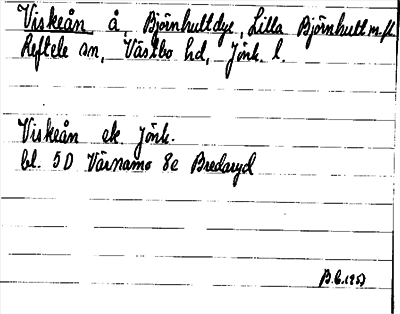 Viskeån å, Björnhultdye, Lilla Björnhult m.fl.
Reftele sn, Västbo hd, Jönk. l.
Viskeån ek. Jönk.
bl. 5D Värnamo 8c Bredaryd